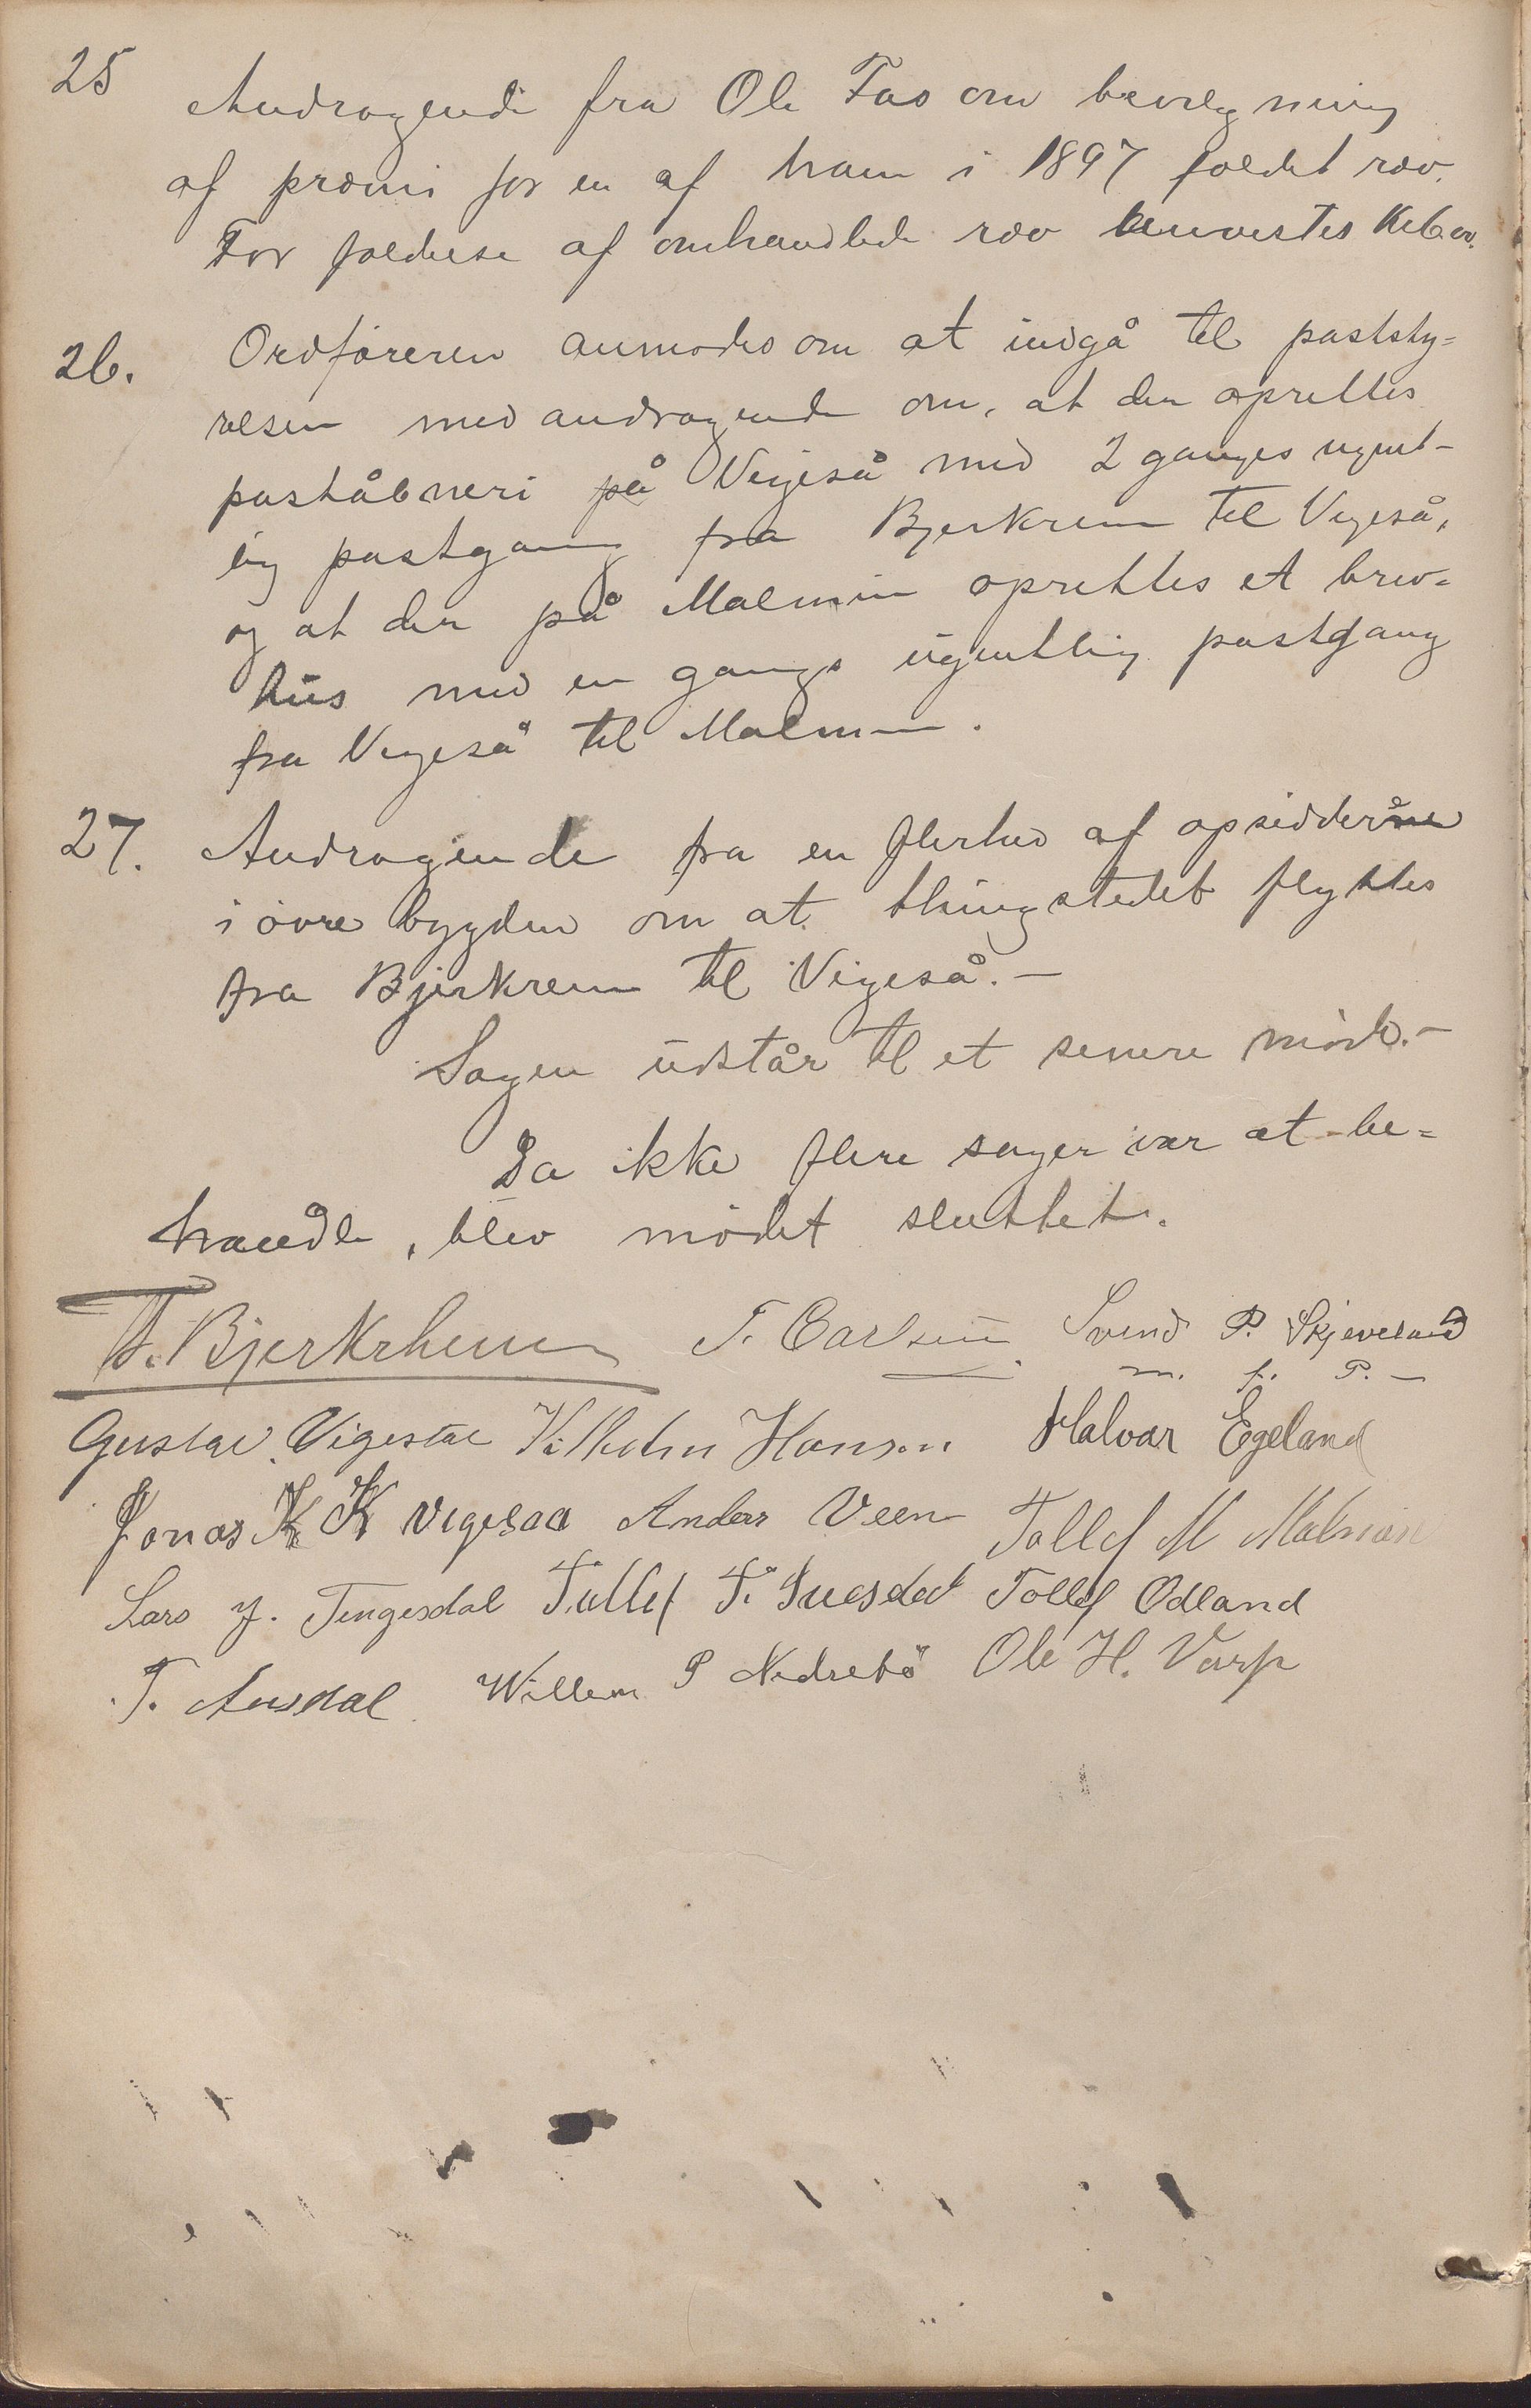 25 Andragende fra Ole Fas om bevilgning
af præmi for en af ham i 1897 fældet ræv.
For fældelse af omhandlede ræv
26. Ordføreren anmodes om at indgå til poststy=
relsen med andragende om, at der oprettes
poståbneri på Vigeså med 2 ganges ugent-
lig postgang fra Bjerkrem til Vigeså,
og at der på Malmin oprettes et brev=
hus med en gangs ugentlig postgang
fra Vigeså til Malmin.
27. Andragende fra en flerhed af opsiddere
i øvre bygden om at thingstedet flyttes
fra Bjerkrem til Vigeså.-
Sagen udstår til et senere møde.-
Da ikke flere sager var at be=
handle, blev mødet sluttet.
T. Bjerkrheim T. Carlsen Svend P. Skjeveland
m. f. P.
Gustav Vigestad Vilhelm Hansen Halvar Egeland
Jonas K K Vigesaa Anders Veen Tollef M Malmin
Lars J. Tengesdal Tollef T. Odland
T. Ausdal Willem P Nedrebø Ole H. Varp